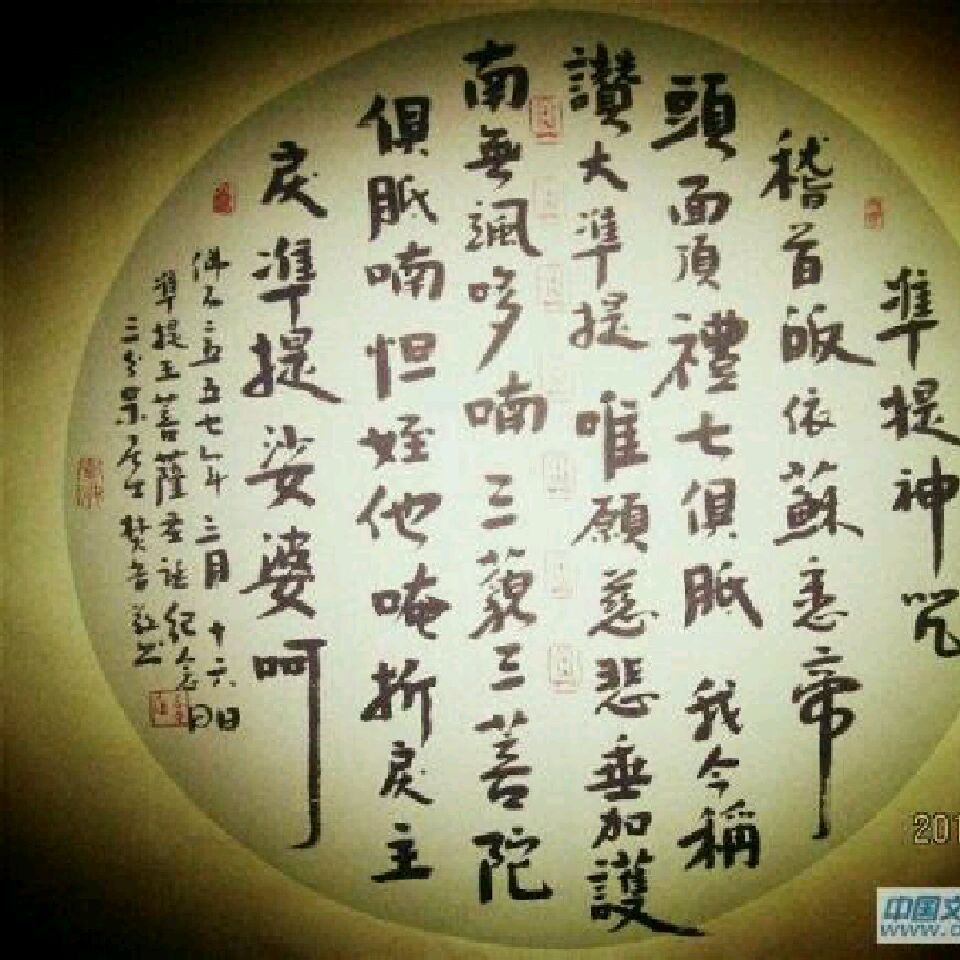 準提神咒
稽首皈依蘇悉帝
頭面頂禮七俱胝 我今稱
讚大準提 唯願慈悲垂加護
南無颯哆喃 三藐三菩陀
俱胝喃 怛姪他 唵 折戾主
戾 準提 娑婆呵
佛 二五五七年 三月十六日
準提王菩薩 紀念日
三
201
中国文
www.c